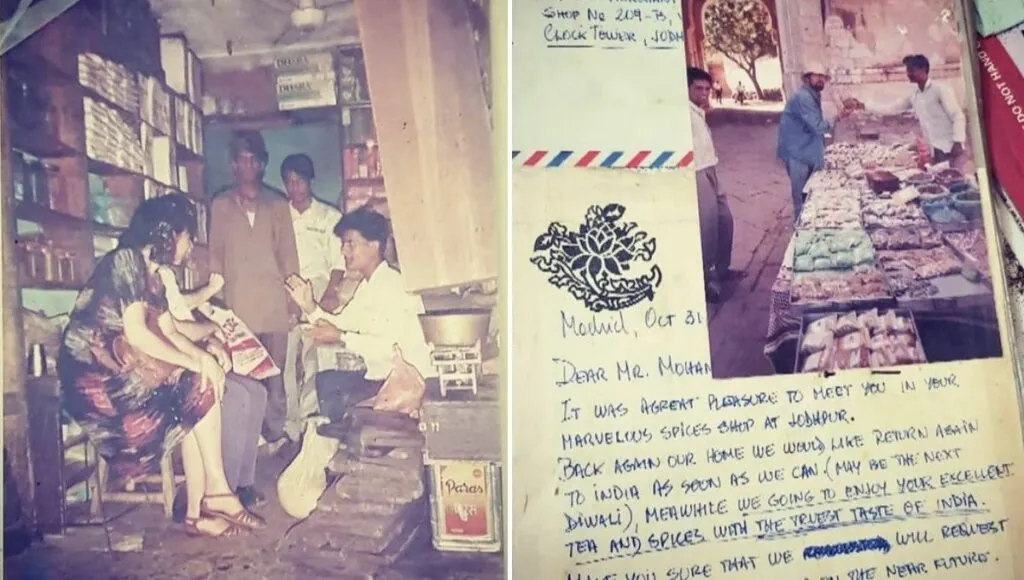 DHARA
DHARA
Paras
SHOP NO 209-B,
CLOCK TOWER, JODH
DO NOT HAND
Madrid, Oct 31
DEAR MR. MOHAN
IT WAS AGREAT PLEASURE TO MEET YOU IN YOUR
MARVELOUS SPICES SHOP AT JODHPUR.
BACK AGAIN OUR HOME WE WOULD LIKE RETURN AGAIN
TO INDIA AS SOON AS WE CAN (MAY BE THE NEXT
DIWALI), MEAWHILE WE GOING TO ENJOY YOUR EXCELLENT
TEA AND SPICES WITH THE TRUEST TASTE OF INDIA.
YOU SURE THAT WE WILL REQUEST
THE NEAR FUTURE.